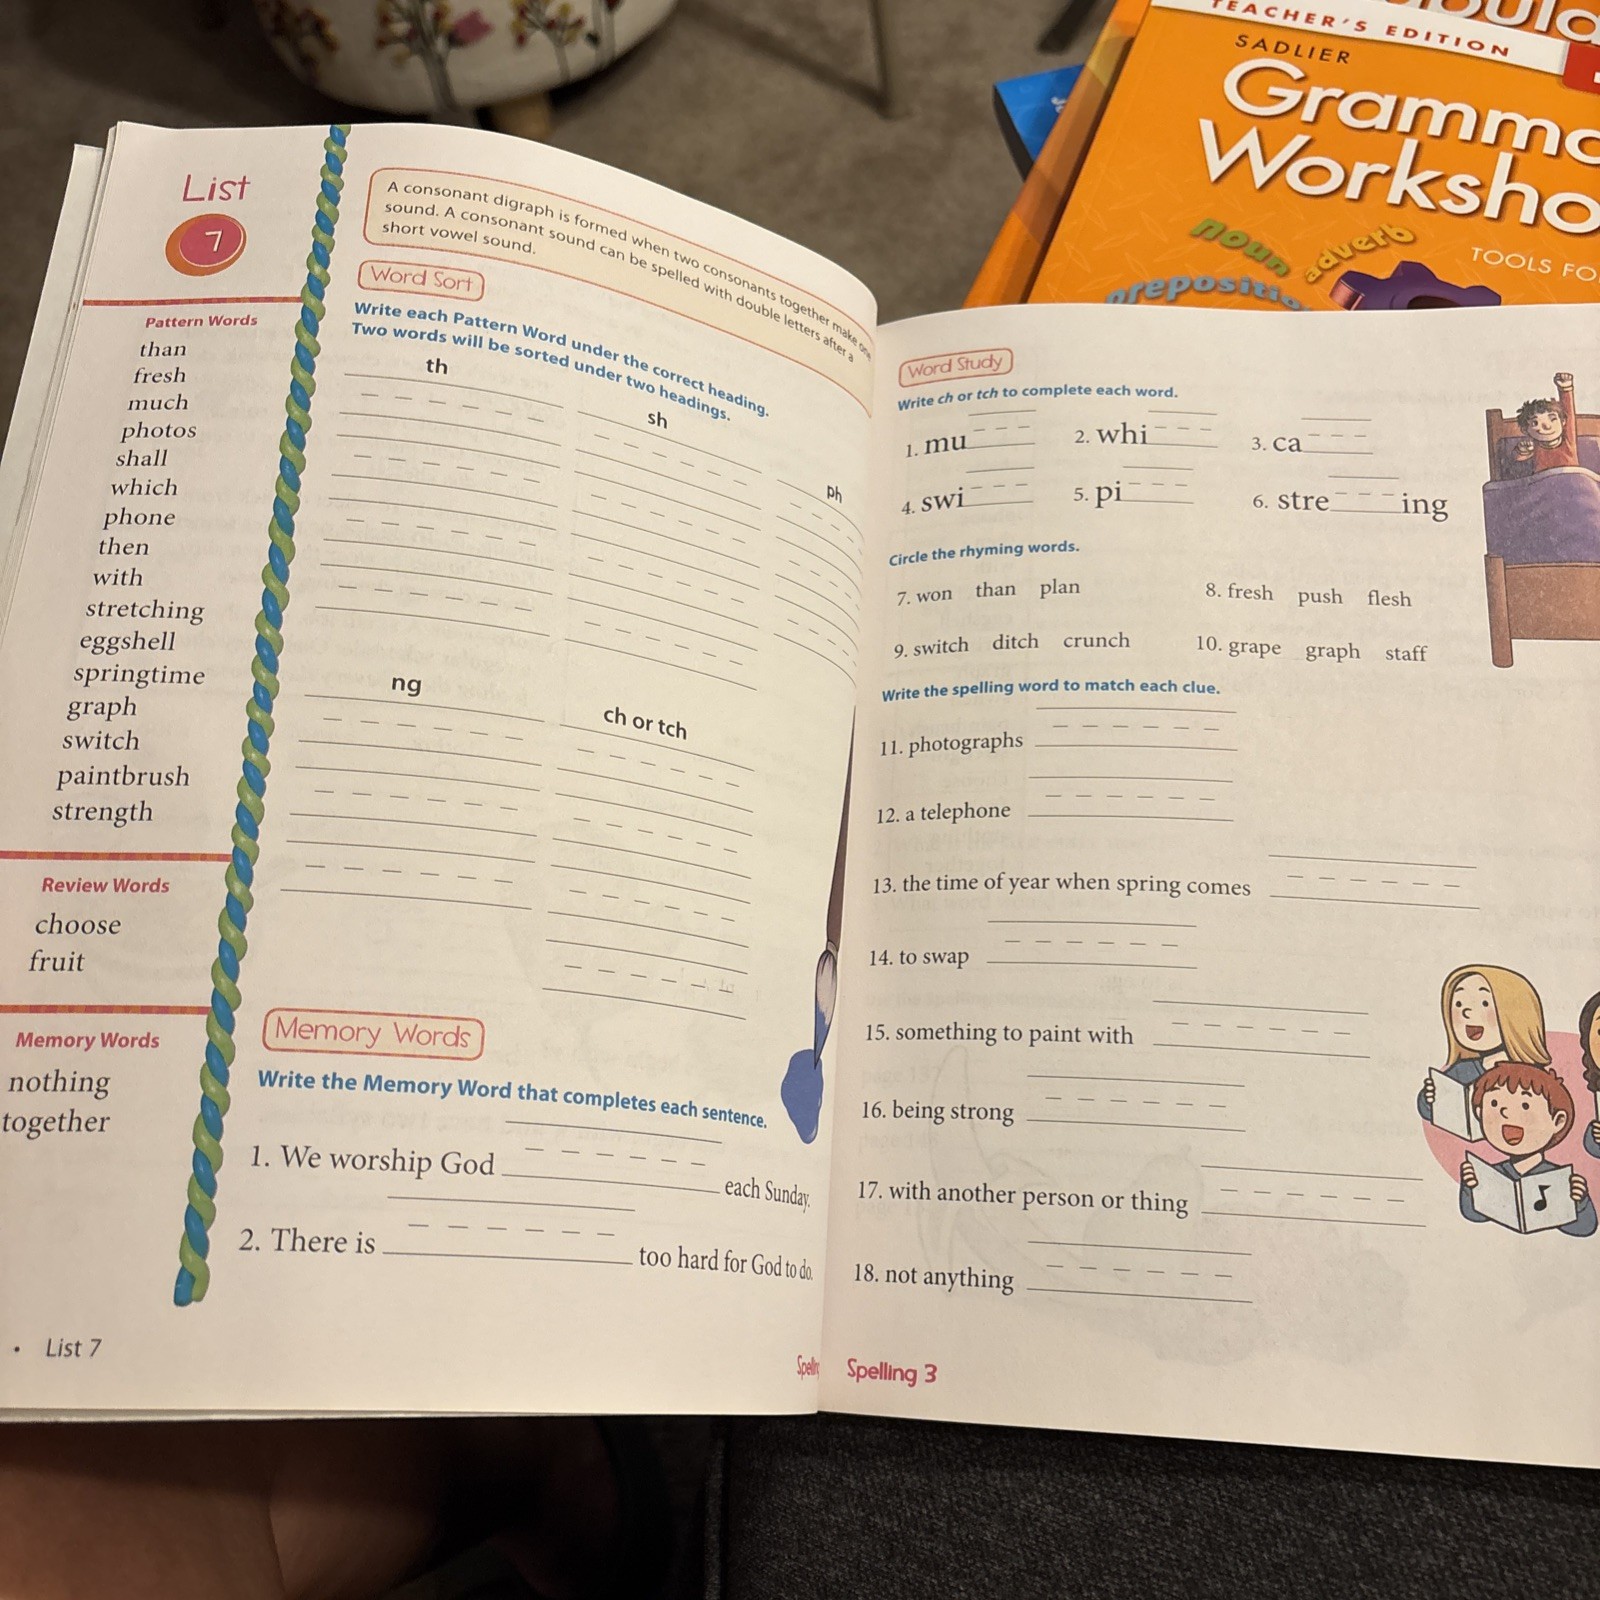 TEACHER'S EDITION
SADLIER
Gramma
Worksho
noun
adverb
prepositio
TOOLS FO
List
7
Pattern Words
than
fresh
much
photos
shall
which
phone
then
with
stretching
eggshell
springtime
graph
switch
paintbrush
strength
Review Words
choose
fruit
Memory Words
nothing
together
A consonant digraph is formed when two consonants together make one
sound. A consonant sound can be spelled with double letters after a
short vowel sound.
Word Sort
Write each Pattern Word under the correct heading.
Two words will be sorted under two headings.
th
sh
ph
ng
ch or tch
Memory Words
Write the Memory Word that completes each sentence.
1. We worship God each Sunday.
2. There is too hard for God to do.
• List 7
Spelling
Word Study
Write ch or tch to complete each word.
1. mu 2. whi 3. ca
4. swi 5. pi 6. stre ing
Circle the rhyming words.
7. won than plan 8. fresh push flesh
9. switch ditch crunch 10. grape graph staff
Write the spelling word to match each clue.
11. photographs
12. a telephone
13. the time of year when spring comes
14. to swap
15. something to paint with
16. being strong
17. with another person or thing
18. not anything
Spelling 3